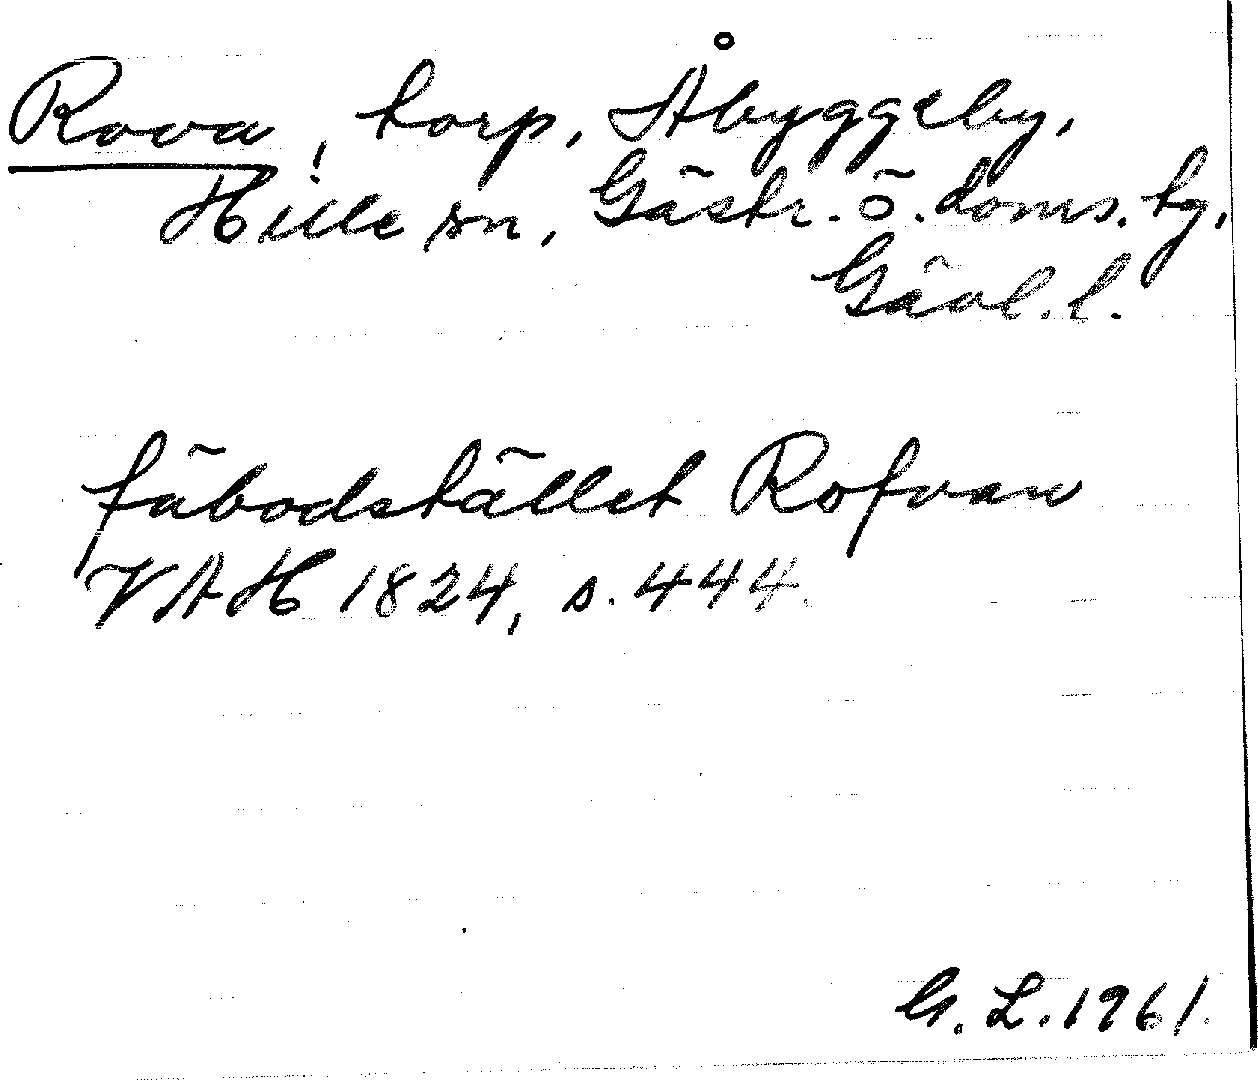 Rova, torp, Åbyggeby,
Hille sn, Gästr. ö. doms. tg,
Gävl. l.
fäbodstället Rofvan
VAH 1824, s. 444.
G. L. 1961.